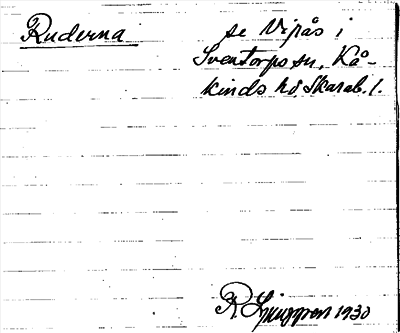 Ruderna
se Vipås i
Sventorps sn, Kå-
kinds hd, Skarab. l.
R Ljunggren 1930